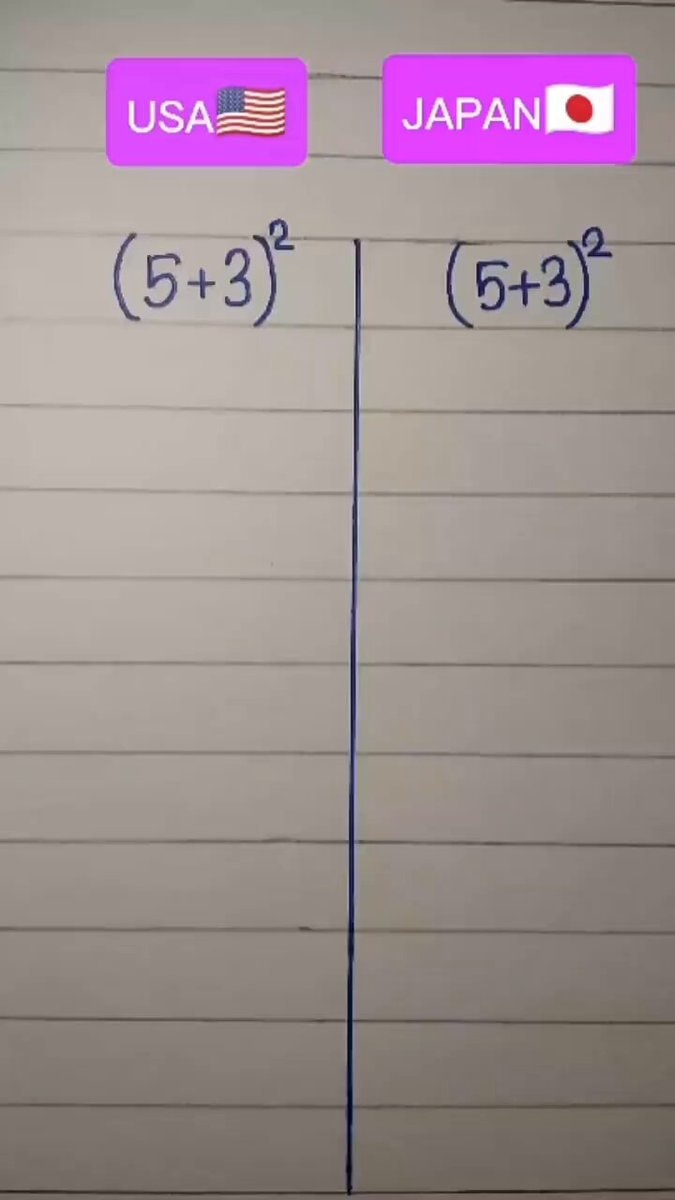 USA🇺🇸 JAPAN🇯🇵
(5+3)² (5+3)²